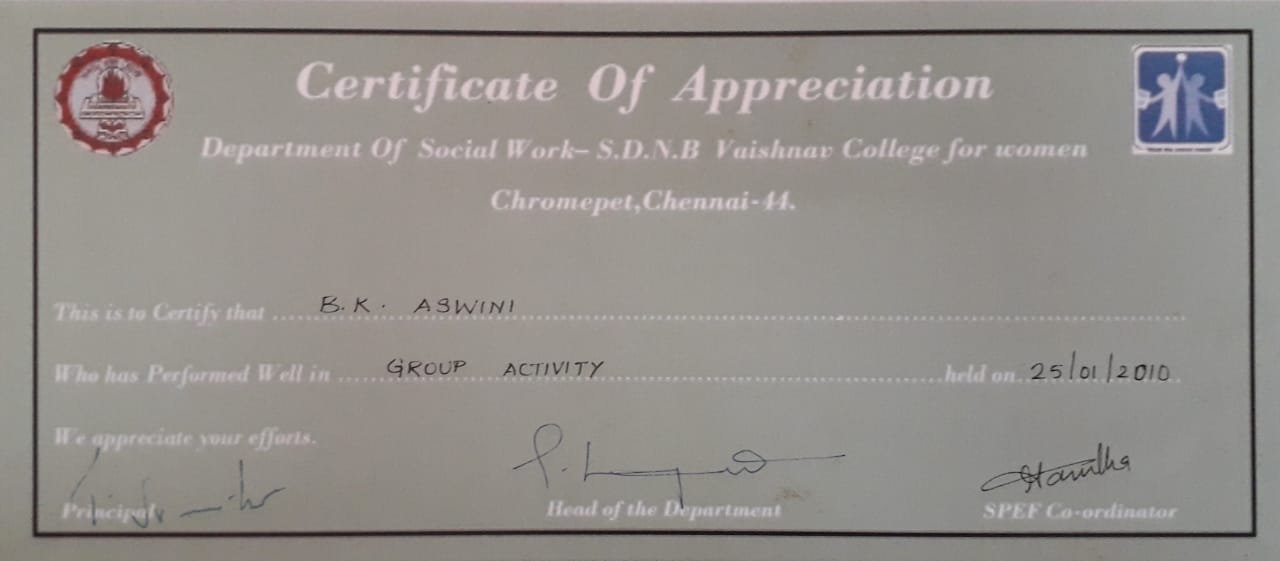 Certificate Of Appreciation
Department Of Social Work- S.D.N.B Vaishnav College for women
Chromepet,Chennai-44.
This is to Certify that ...... B.K. ASWINI ......
Who has Performed Well in ...... GROUP ACTIVITY ...... held on.. 25/01/2010
We appreciate your efforts.
Principal Head of the Department SPEF Co-ordinator